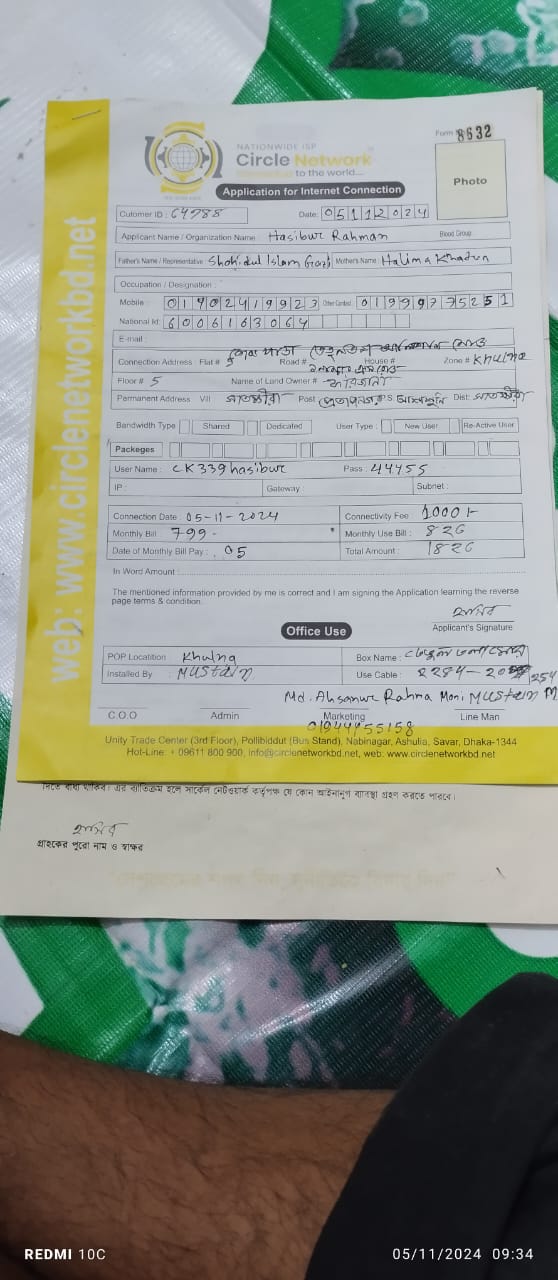 Form # 8632
NATIONWIDE ISP
Circle Network
to the world...
Photo
Application for Internet Connection
Cutomer ID : 64788 Date: 05112024
Applicant Name / Organization Name : Hasibur Rahman Blood Group:
Father's Name / Representative : Shohidul Islam Gazi Mother's Name : Halima Khatun
Occupation / Designation :
Mobile : Other Contact :
National Id: 6006163064
E-mail :
Connection Address : Flat # 5 Road # House # Zone # Khulna
Floor # 5 Name of Land Owner #
Permanent Address Vill সাতক্ষীরা Post প্রতাপনগর P.S আশাশুনি Dist: সাতক্ষীরা
Bandwidth Type Shared Dedicated User Type : New User Re-Active User
Packeges
User Name : CK339hasibur Pass : 44455
IP : Gateway : Subnet :
Connection Date : 05-11-2024 Connectivity Fee : 1000/-
Monthly Bill : 799- Monthly Use Bill : 826
Date of Monthly Bill Pay : 05 Total Amount : 1826
In Word Amount :
The mentioned information provided by me is correct and I am signing the Application learning the reverse
page terms & condition.
হাসিব
Applicant's Signature
Office Use
POP Locatition : Khulna Box Name :
Installed By : Mustain Use Cable : 2284-20 254
Md. Ahsanur Rahma Moni Mustain M
C.O.O Admin Marketing Line Man
01944455158
Unity Trade Center (3rd Floor), Pollibiddut (Bus Stand), Nabinagar, Ashulia, Savar, Dhaka-1344
Hot-Line: + 09611 800 900, info@circlenetworkbd.net, web: www.circlenetworkbd.net
web: www.circlenetworkbd.net
দিতে বাধ্য থাকিব। এর ব্যতিক্রম হলে সার্কেল নেটওয়ার্ক কর্তৃপক্ষ যে কোন আইনানুগ ব্যবস্থা গ্রহণ করতে পারবে।
হাসিব
গ্রাহকের পুরো নাম ও স্বাক্ষর
REDMI 10C
05/11/2024 09:34